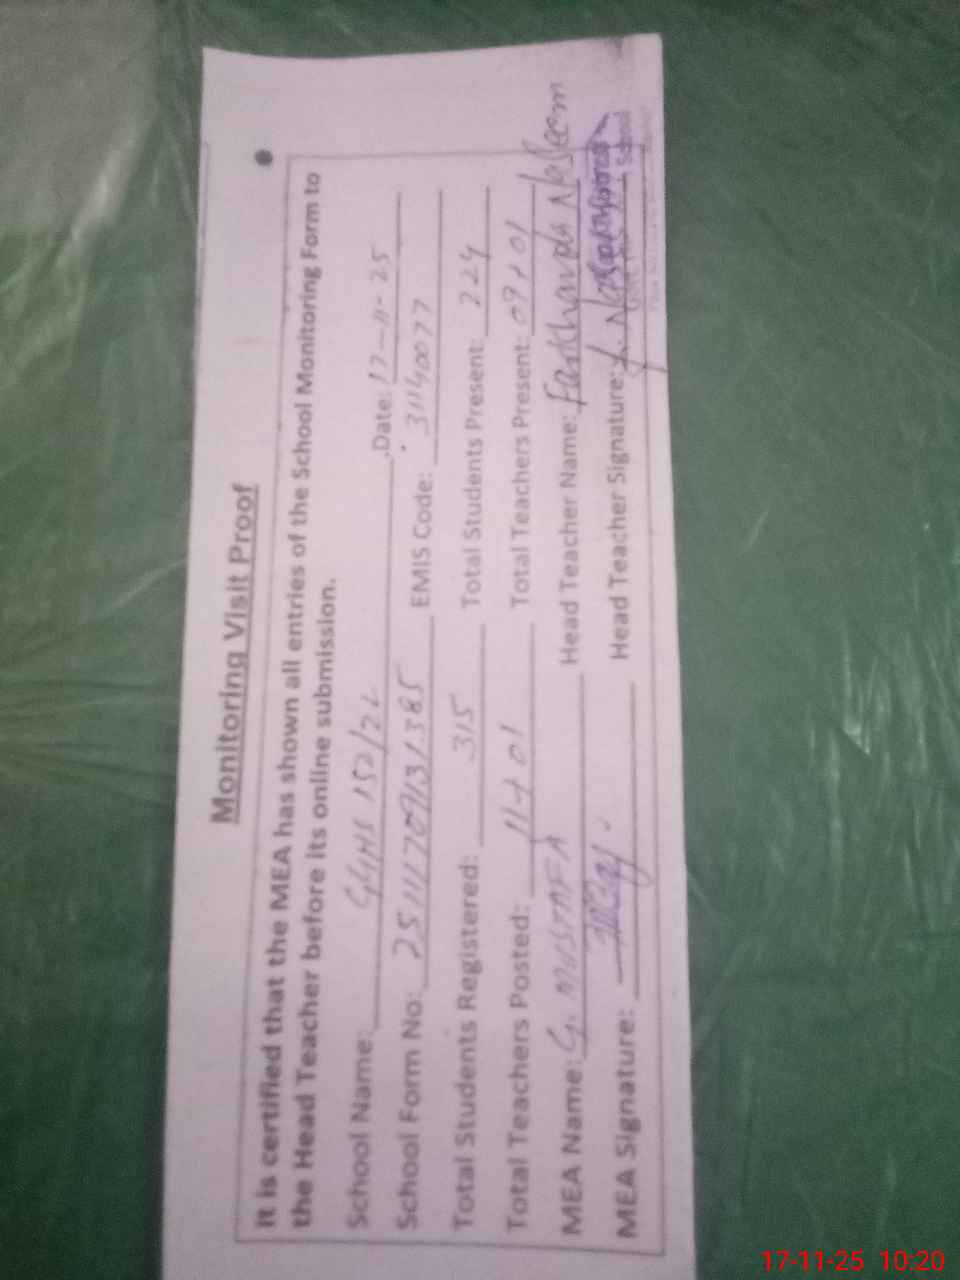 Monitoring Visit Proof
It is certified that the MEA has shown all entries of the School Monitoring Form to
the Head Teacher before its online submission.
School Name: GGHS 152/2L Date: 17-11-25
School Form No: EMIS Code: 31140077
Total Students Registered: 315 Total Students Present: 224
Total Teachers Posted: 11+01 Total Teachers Present: 09+01
MEA Name: G. MUSTAFA Head Teacher Name: Farkhanda Naseem
MEA Signature: Head Teacher Signature:
School
17-11-25 10:20